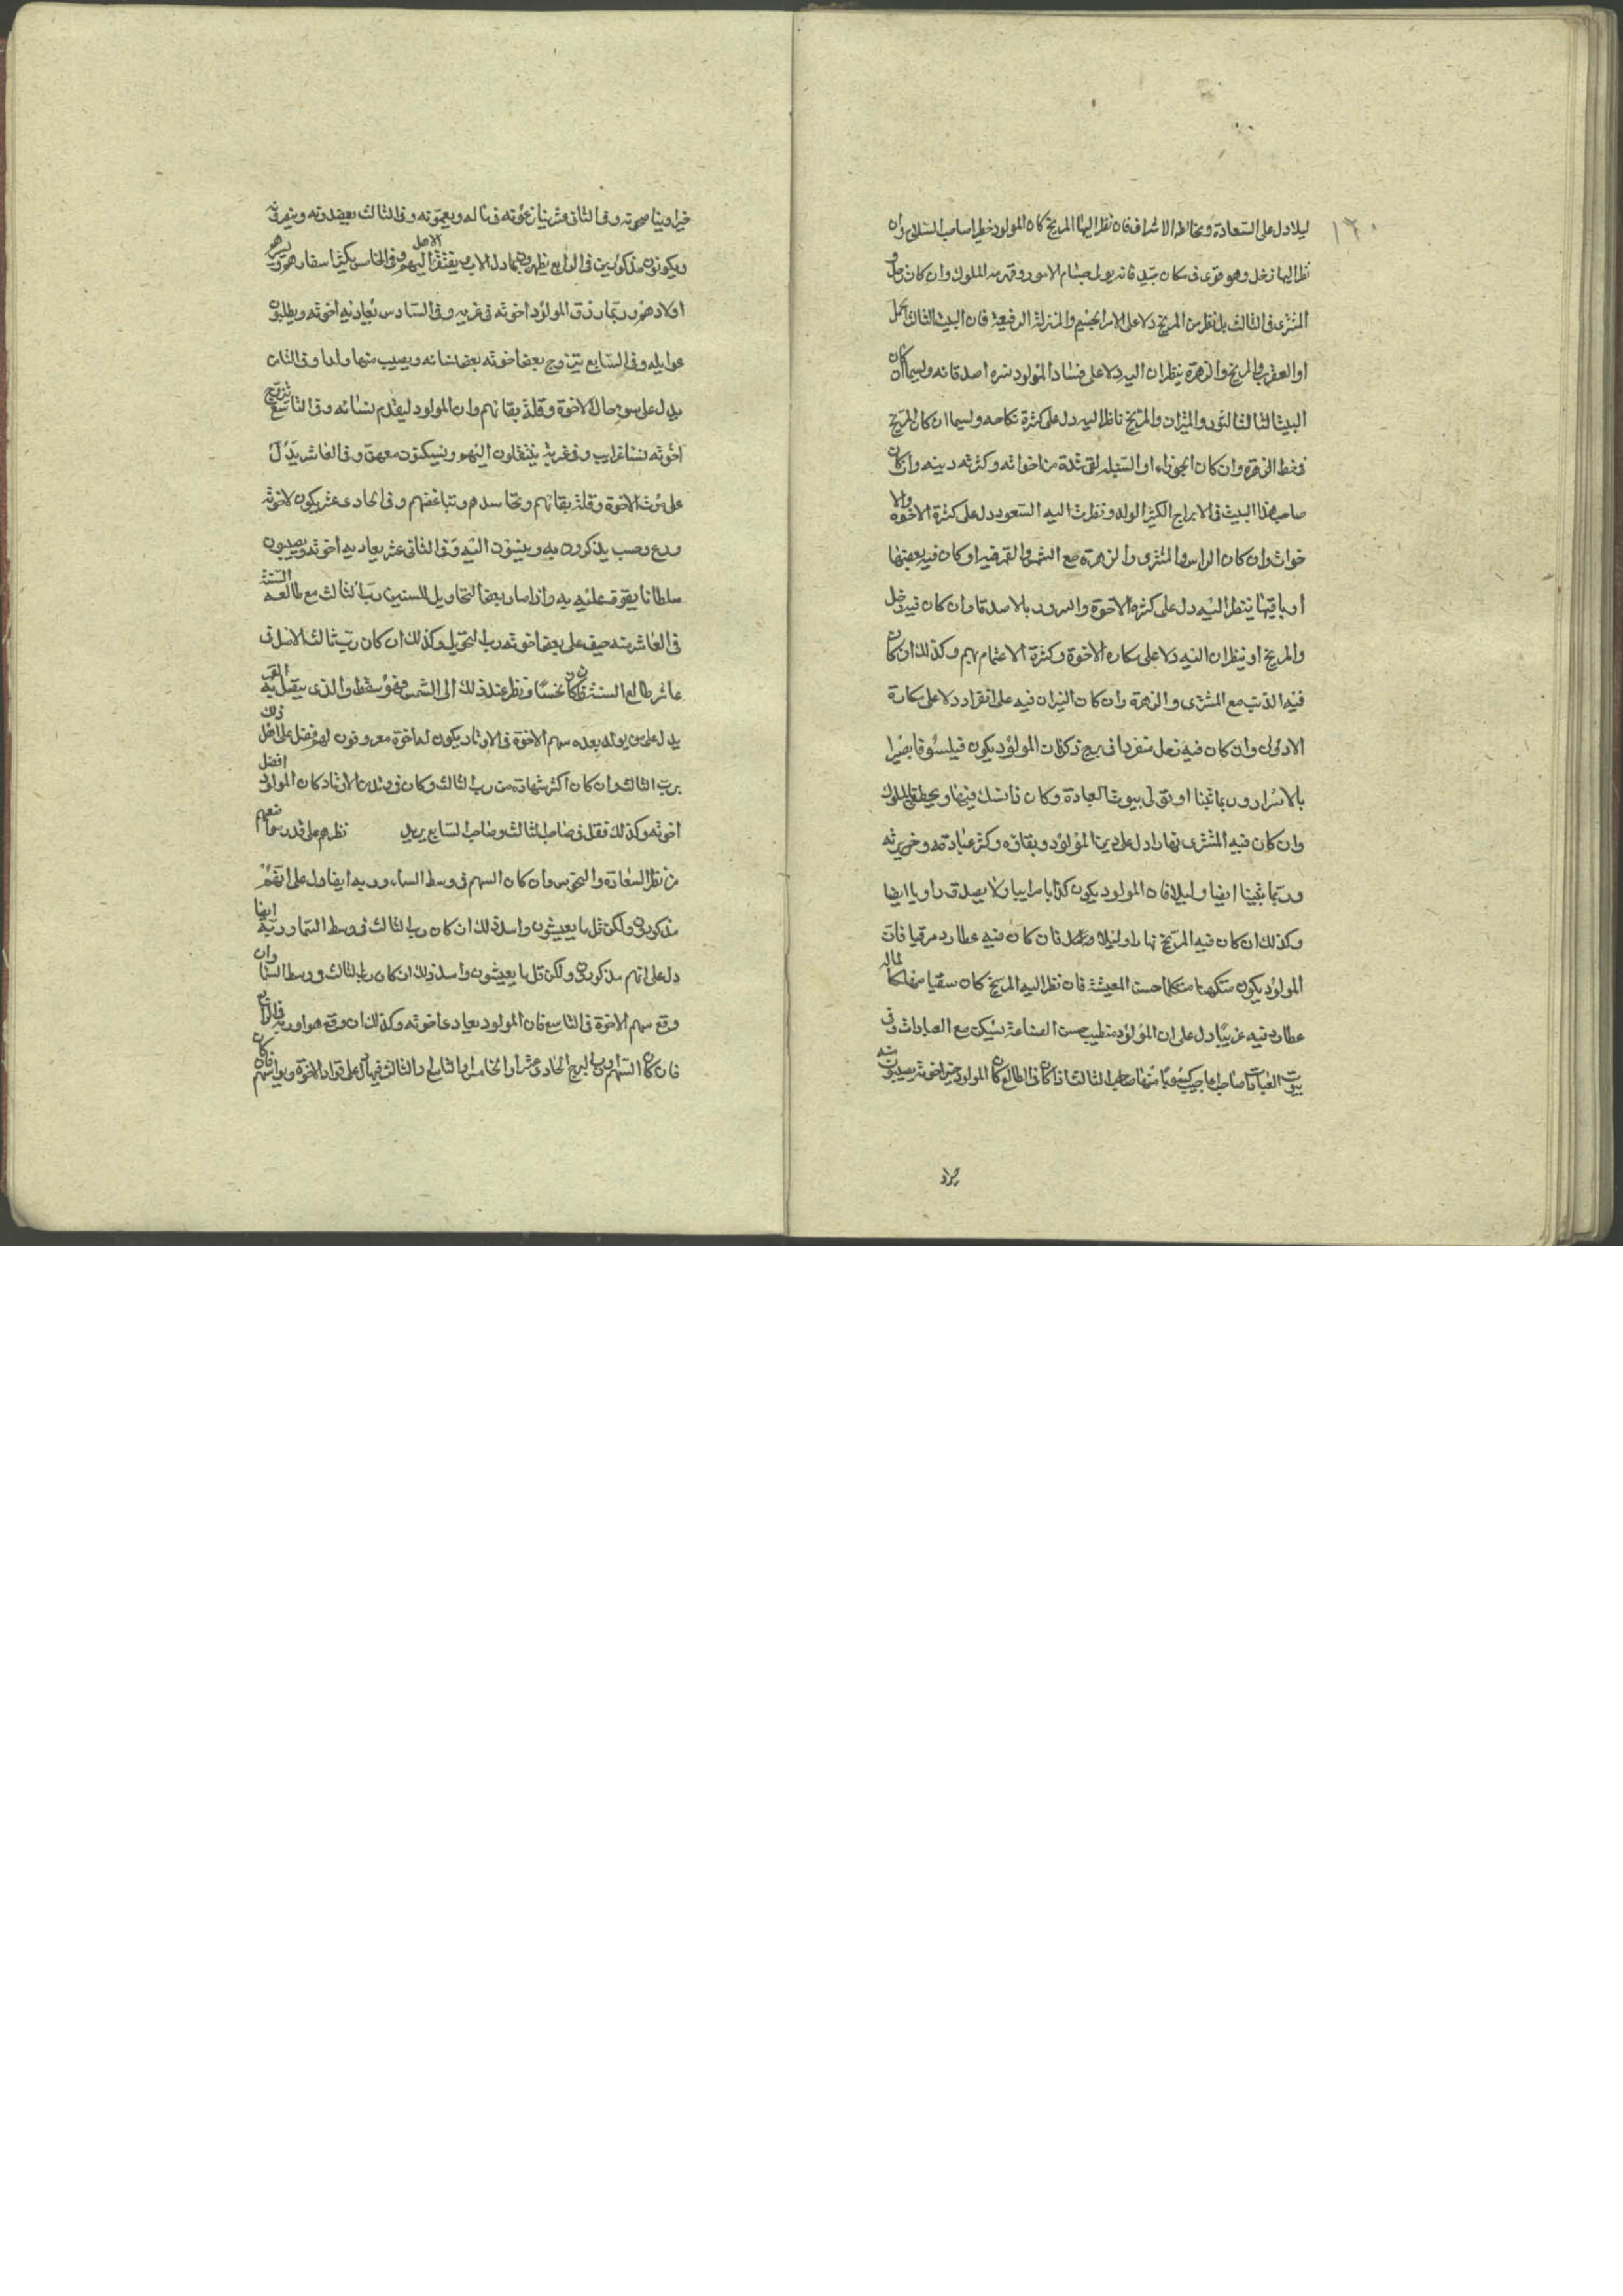 ١٦٠
ليلا دل على السعادة ومخالطه الاشراف فان نظر اليها المريخ كان المولود خطيرا صاحب السلاح وان
نظر اليها زحل وهو قوى فى مكان جيد فانه يولى جسام الامور وقهرمه الملوك وان كان زحل و
المشترى فى الثالث بلا نظر من المريخ دلا على الامر الجسيم والمنزلة الرفيعة فان البيت الثالث الحمل
او العقرب والمريخ والزهرة ينظران اليه دلا على فساد المولود نسره اصدقائه ولسيما ان كان
البيت الثالث الثور والميزان والمريخ ناظر اليه دل على كثرة نكاحه ولسيما ان كان المريخ
فى خط الزهرة وان كان الجوزاء او السنبله لقى شدة من اخواته وكثرته دينه وان كان
صاحب هذا البيت فى الابراج الكثيرا لولد ونظرت اليه السعود دل على كثرة الاخوة والا
خوات وان كان الراس والمشترى والزهرة مع الشمس والقمر فيه او كان فيه بعضها
او باقيها ينظر اليه دل على كثرة الاخوة والسرور بالاصدقا وان كان فيه زحل
والمريخ او ينظران اليه دلا على مكاره الاخوة وكثرة الاغتمام بهم وكذلك ان كان
فيه الذنب مع المشترى والزهرة وان كان النيران فيه على انفراد دلا على مكارة
الاولى وان كان فيه زحل منفردا فى برج ذكر فان المولود يكون فيلسوفا بصيرا
بالاسرار وربما تنبا او تولى بيوت العبادة وكان ناسك فيها ويحظى للملوك
وان كان فيه المشترى نهارا دل على دين المولود وبقائه وكثر عبادته وخيريته
وربما تنبينا ايضا وليلا فان المولود يكون كذابا مرابيا ولا يصدق راويا ايضا
وكذلك ان كان فيه المريخ نهارا وليلا فان كان فيه عطارد مرقيا فان
المولود يكون متكهنا متكلما حسن المعيشة فان نظر اليه المريخ كان سقيا مهلكا لماله
عطارد فيه غربيا دل على ان المولود متطيب حسن الصناعة يسكن مع العبادات وفى
بيوت العبادات صاحب الثالث اذا كان فى الطالع كان المولود خير اخوته يصيبون منه
خيرا
خيرا ويناصحونه وفى الثانى عشر ينازعونه فى ماله ويعيبونه وفى الثالث يعضدونه وينصرونه
ويكونون مذكورين فى الرابع يظهرون بما دل الاب ويفتقرا اليهم الاهل وفى الخامس يكثرا سفارهم ويسرهم
اولادهم وربما رزق المولود اخوته فى غربه وفى السادس يعاديه اخوته ويطلبون
غوايله وفى السابع يتزوج بعض اخوته بعض نسائه ويصيب منها ولدا وفى الثامن
يدل على سوء حال الاخوة وقلة بقائهم وان المولود ليقدم نسائه وفى التاسع يتزوج
اخوته نسا غرايب وفى غربة ينتقلون اليهم ويسكنون معهن وفى العاشر يدل
على موت الاخوة وقلة بقائهم وتحاسدهم وتباغضهم وفى الحادى عشر يكون لاخوته
ورع وحسب يذكرون به وينسبون اليه وفى الثانى عشر يعاديه اخوته ويصيبون
سلطانا يقوى عليه به واذا صار بعض التحاويل للسنين رب الثالث مع طالع السنة
فى العاشر منه حيف على بعض اخوته رب التحويل وكذلك ان كان رب ثالث الاصل فى
عاشر طالع السنة فان كان نحسا ونظر عند ذلك الى الشمس وهو سقط والذى يتصل به القمر
يدل على من يولد بعده سهم الاخوة فى الاوتاد يكون له اخوة معروفون لهم فضل على اهل ذلك
برب الثالث وان كان اكثر شهادة من رب الثالث وكان فى وتد من الاوتاد كان المولود افضل
اخوته وكذلك فقل فى صاحب الثالث وصاحب السابع يريد نظرهم على قدر سما ضعهم
من نظر السعادة والنحوس وان كان السهم فى وسط السماء وربه ايضا دل على انهم
مذكورون ولكن قل ما يعيشون واسلا ذلك ان كان رب الثالث فى وسط السما وربه ايضا
دل على انهم مذكورون ولكن قل ما يعيشون واسلا ذلك ان كان رب الثالث ووسط السما وان
وقع سهم الاخوة فى التاسع فان المولود يعادى اخوته وكذلك ان وقع هو او ربه فى الرابع
فان كان السهم او رب البرج الحادى عشر او الخامس او التاسع والثالث فيها دل على تواد الاخوة فان كان